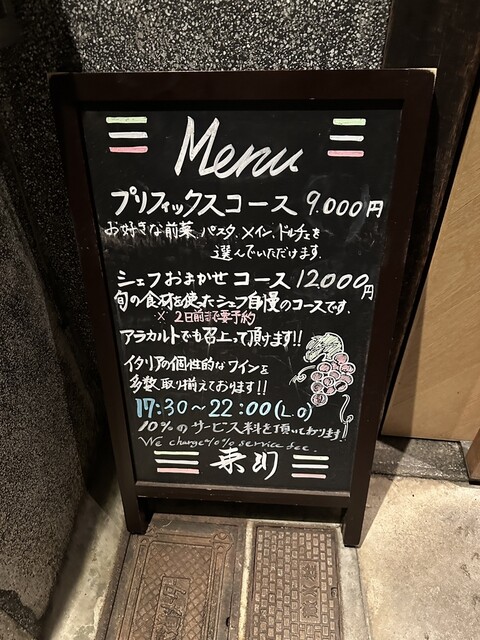 Menu
プリフィックスコース 9.000円
お好きな前菜、パスタ、メイン、ドルチェを
選んでいただけます。
シェフおまかせコース 12000円
旬の食材を使ったシェフ自慢のコースです。
※ 2日前まで要予約
アラカルトでも召上って頂けます!!
イタリアの個性的なワインを
多数取り揃えております!!
17:30〜22:00(L.O)
10%のサービス料を頂いております。
We charge 10% service fee.